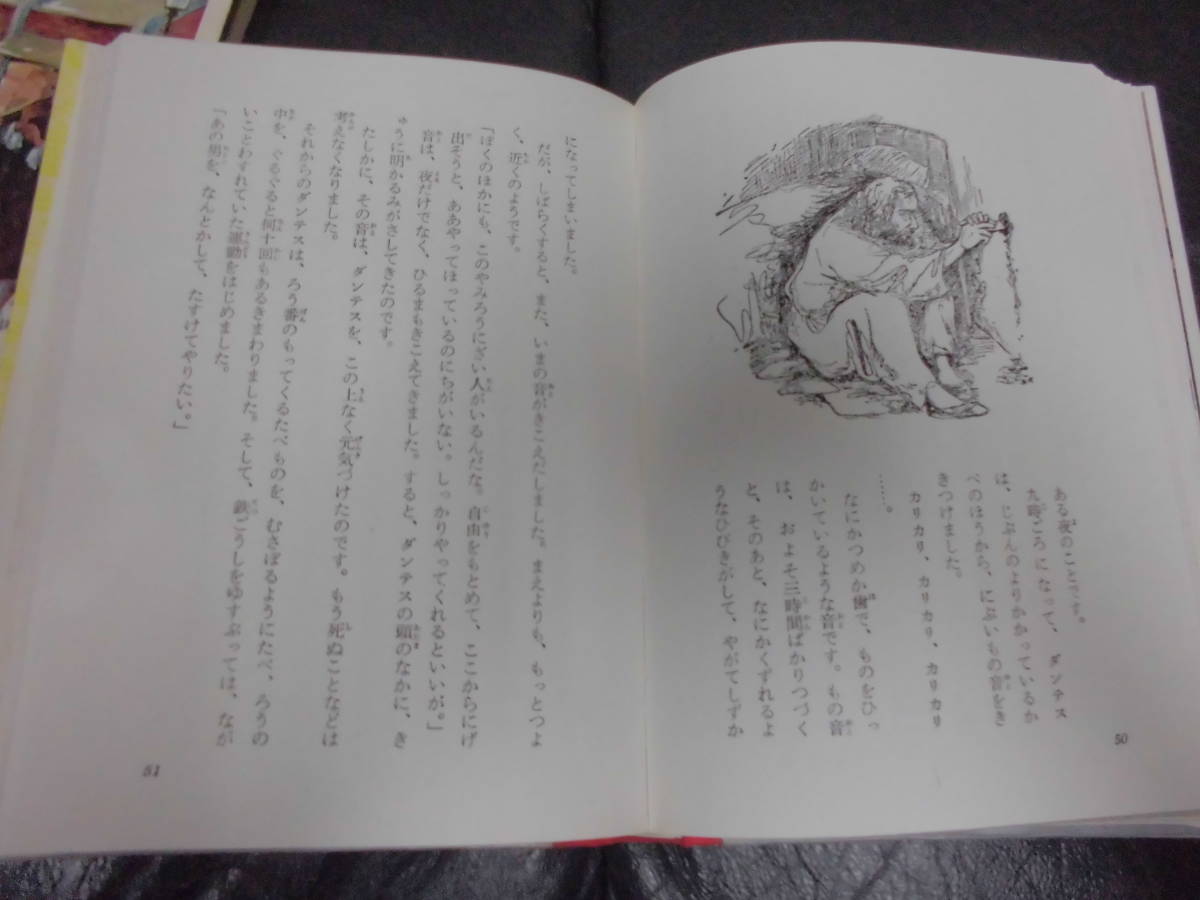 ある夜のことです。
九時ごろになって、ダンテス
は、じぶんのよりかかっているか
べのほうから、にぶいもの音をき
きつけました。
カリカリ、カリカリ、カリカリ
……。
なにかつめか歯で、ものをひっ
かいているような音です。もの音
は、およそ三時間ばかりつづく
と、そのあと、なにかくずれるよ
うなひびきがして、やがてしずか
50
になってしまいました。
だが、しばらくすると、また、いまの音がきこえだしました。まえよりも、もっとつよ
く、近くのようです。
「ぼくのほかにも、このやみろうにざい人がいるんだな。自由をもとめて、ここからにげ
出そうと、ああやってほっているのにちがいない。しっかりやってくれるといいが。」
音は、夜だけでなく、ひるまもきこえてきました。すると、ダンテスの頭のなかに、き
ゅうに明かるみがさしてきたのです。
たしかに、その音は、ダンテスを、この上なく元気づけたのです。もう死ぬことなどは
考えなくなりました。
それからのダンテスは、ろう番のもってくるたべものを、むさぼるようにたべ、ろうの
中を、ぐるぐると何十回もあるきまわりました。そして、鉄ごうしをゆすぶっては、なが
いことわすれていた運動をはじめました。
「あの男を、なんとかして、たすけてやりたい。」
51